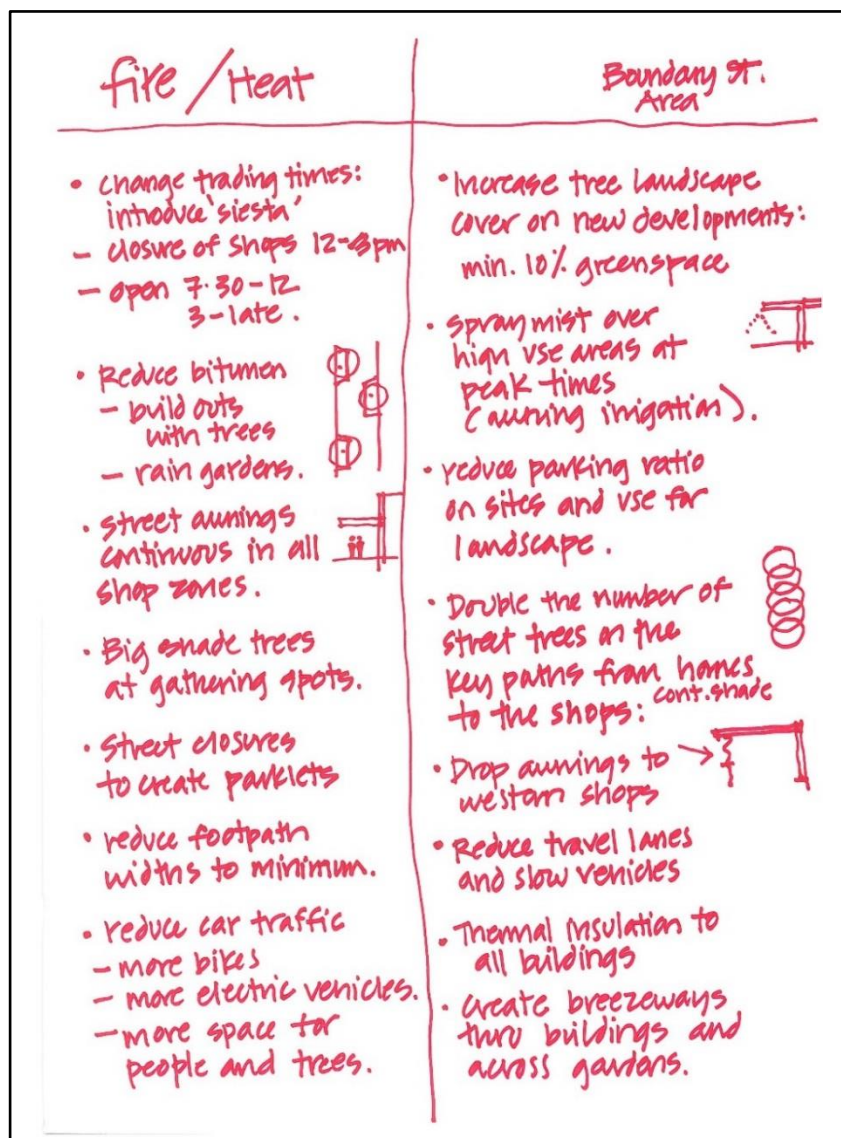 fire / Heat
• change trading times:
introduce 'siesta'
– closure of shops 12-3pm
– open 7.30-12
3-late.
• Reduce bitumen
– build outs
with trees
– rain gardens.
• street awnings
continuous in all
shop zones.
• Big shade trees
at gathering spots.
• Street closures
to create parklets
• reduce footpath
widths to minimum.
• reduce car traffic
– more bikes
– more electric vehicles.
– more space for
people and trees.
Boundary St.
Area
• Increase tree landscape
cover on new developments:
min. 10% greenspace
• spray mist over
high use areas at
peak times
(awning irrigation).
• reduce parking ratio
on sites and use for
landscape.
• Double the number of
street trees on the
key paths from homes
to the shops: cont. shade
• Drop awnings to
western shops
• Reduce travel lanes
and slow vehicles
• Thermal insulation to
all buildings
• create breezeways
thru buildings and
across gardens.